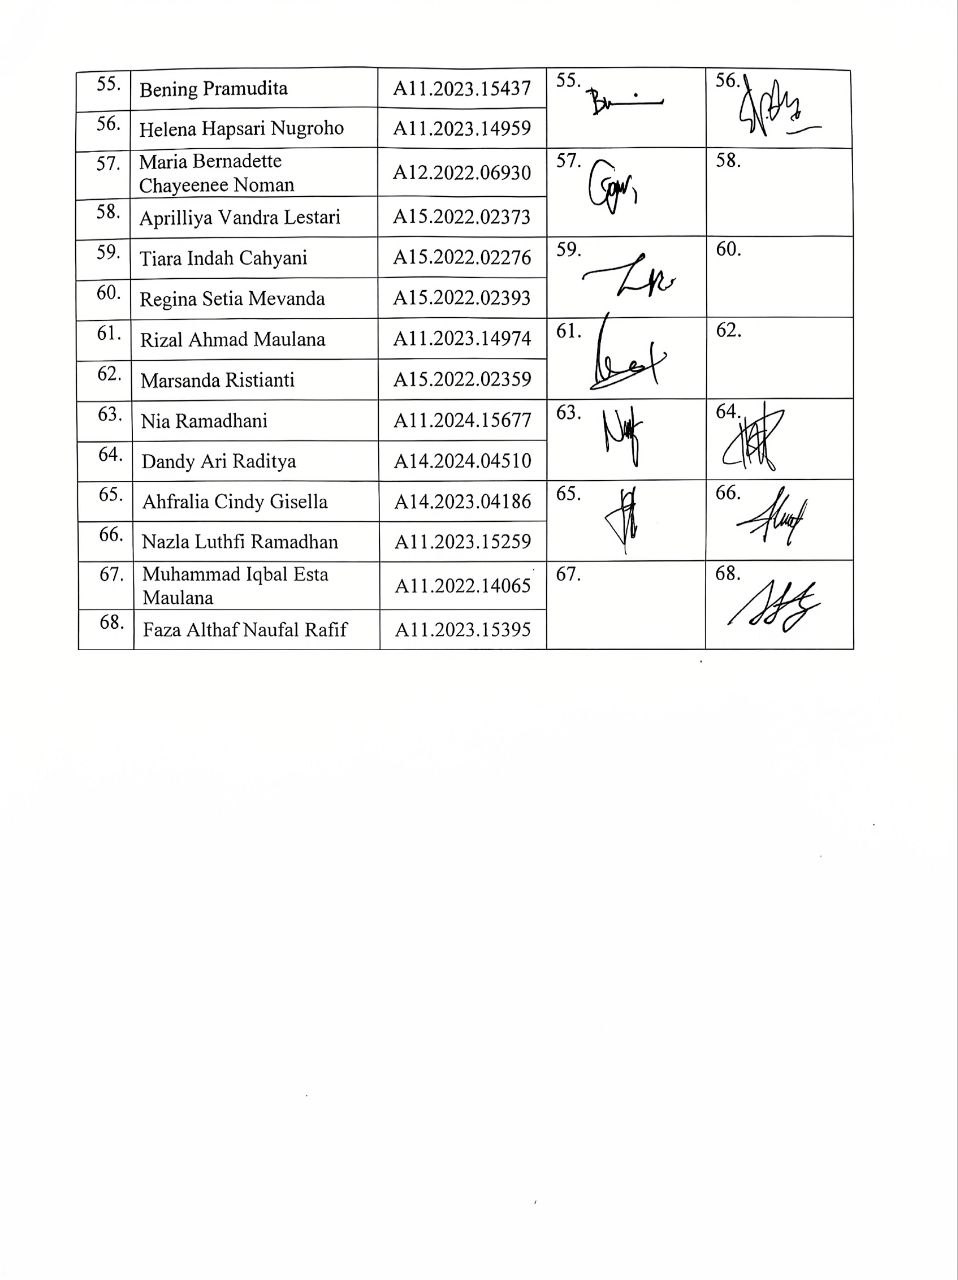 55. Bening Pramudita A11.2023.15437 55. 56.
56. Helena Hapsari Nugroho A11.2023.14959
57. Maria Bernadette
Chayeenee Noman A12.2022.06930 57. 58.
58. Aprilliya Vandra Lestari A15.2022.02373
59. Tiara Indah Cahyani A15.2022.02276 59. 60.
60. Regina Setia Mevanda A15.2022.02393
61. Rizal Ahmad Maulana A11.2023.14974 61. 62.
62. Marsanda Ristianti A15.2022.02359
63. Nia Ramadhani A11.2024.15677 63. 64.
64. Dandy Ari Raditya A14.2024.04510
65. Ahfralia Cindy Gisella A14.2023.04186 65. 66.
66. Nazla Luthfi Ramadhan A11.2023.15259
67. Muhammad Iqbal Esta
Maulana A11.2022.14065 67. 68.
68. Faza Althaf Naufal Rafif A11.2023.15395